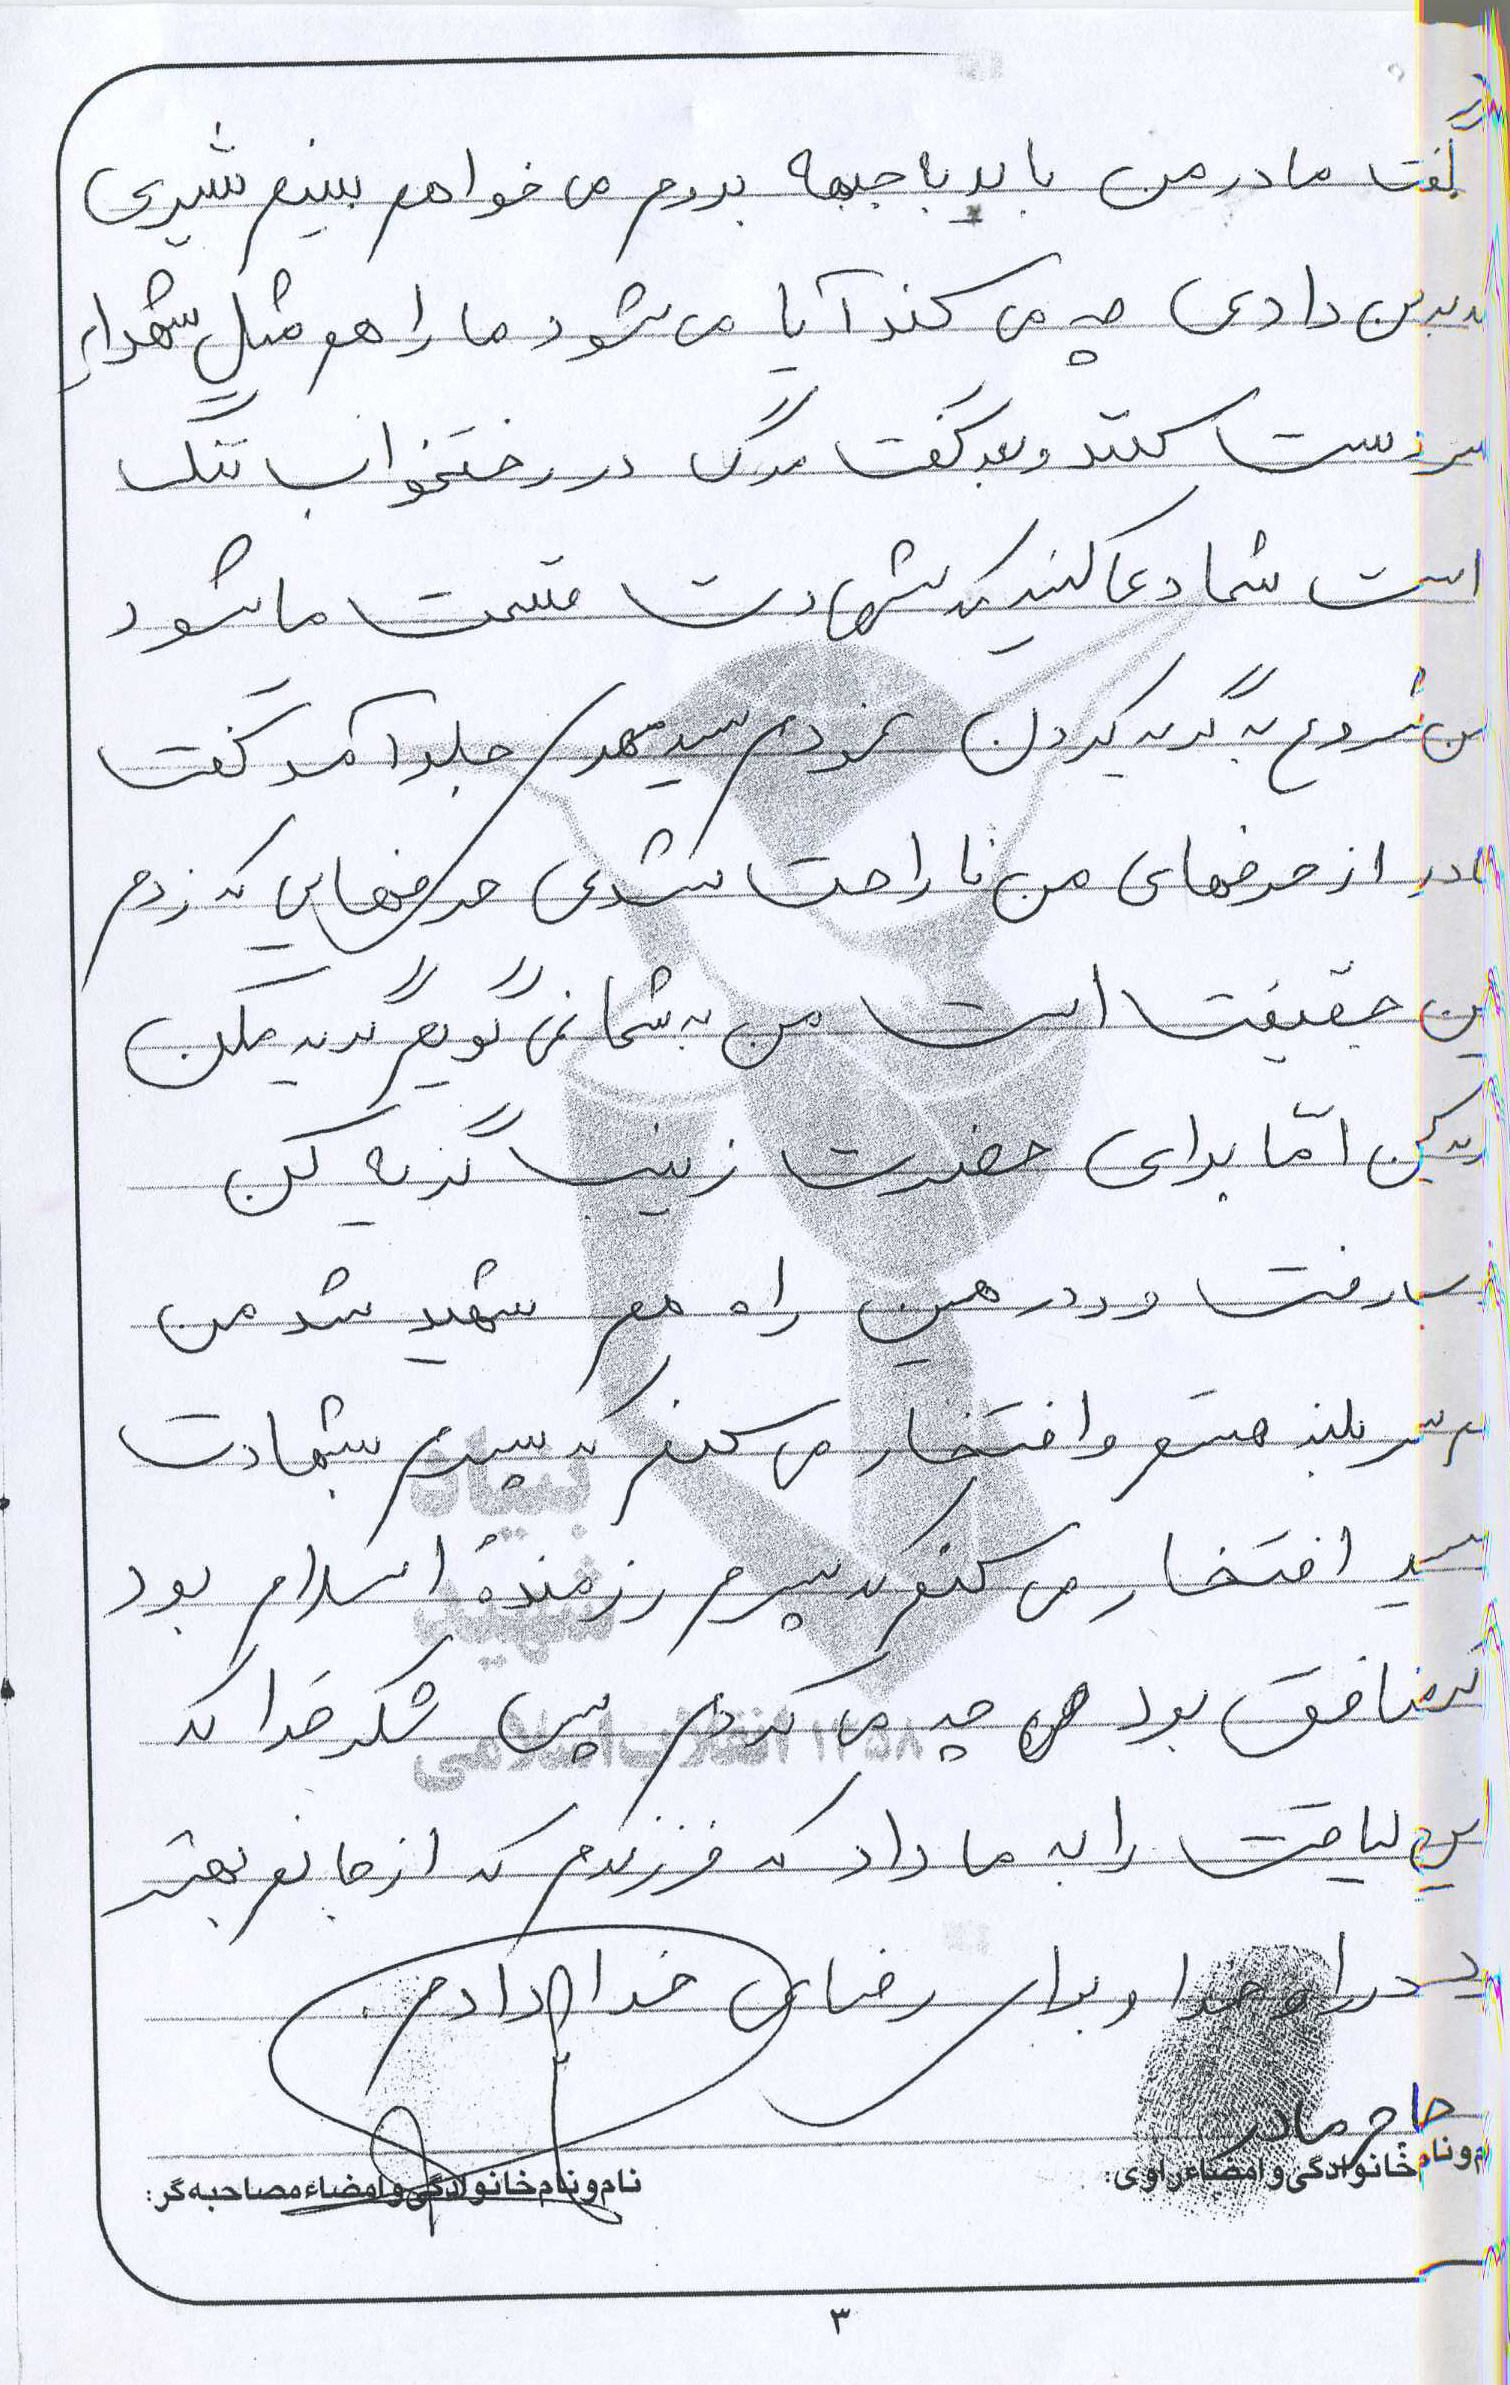 گفت مادر من باید با جبهه بروم می خواهم ببینم شیری
به من دادی چه می کند آیا می شود ما را هم مثل شهدای
سر دست کنند و بعد گفت مرگ در رختخواب ننگ
است شما دعا کنید که شهادت قسمت ما شود
من شروع به گریه کردن نمودم سید مهدی جلو آمد گفت
مادر از حرفهای من ناراحت شدی حرفهایی که زدم
این حقیقت است من به شما نمی گویم گریه مکن
گریه کن امّا برای حضرت زینب گریه کن
رفت و در همین راه هم شهید شد من
سر بلند هستم و افتخار می کنم که پسرم بشهادت
رسید افتخار می کنم که پسرم رزمندهٔ اسلام بود
منافق بود چه می کردم پس شکر خدا که
این لیاقت را به ما داد که فرزندم که از جانم بهتر
در راه خدا و برای رضای خدا دادم.
حاج مادر
نام و نام خانوادگی و امضاء راوی:
نام و نام خانوادگی و امضاء مصاحبه گر:
بنیاد
شهید
انقلاب اسلامی ۱۳۵۸
۳